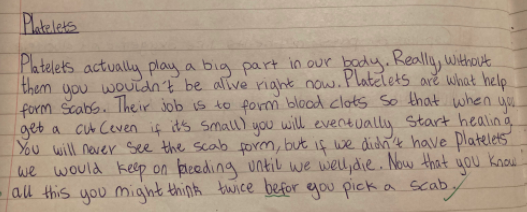 Platelets
Platelets actually play a big part in our body. Really, without
them you wouldn't be alive right now. Platelets are what help
form scabs. Their job is to form blood clots so that when you
get a cut (even if it's small) you will eventually start healing
You will never see the scab form, but if we didn't have Platelets
we would keep on bleeding until we well, die. Now that you know
all this you might think twice befor you pick a scab.